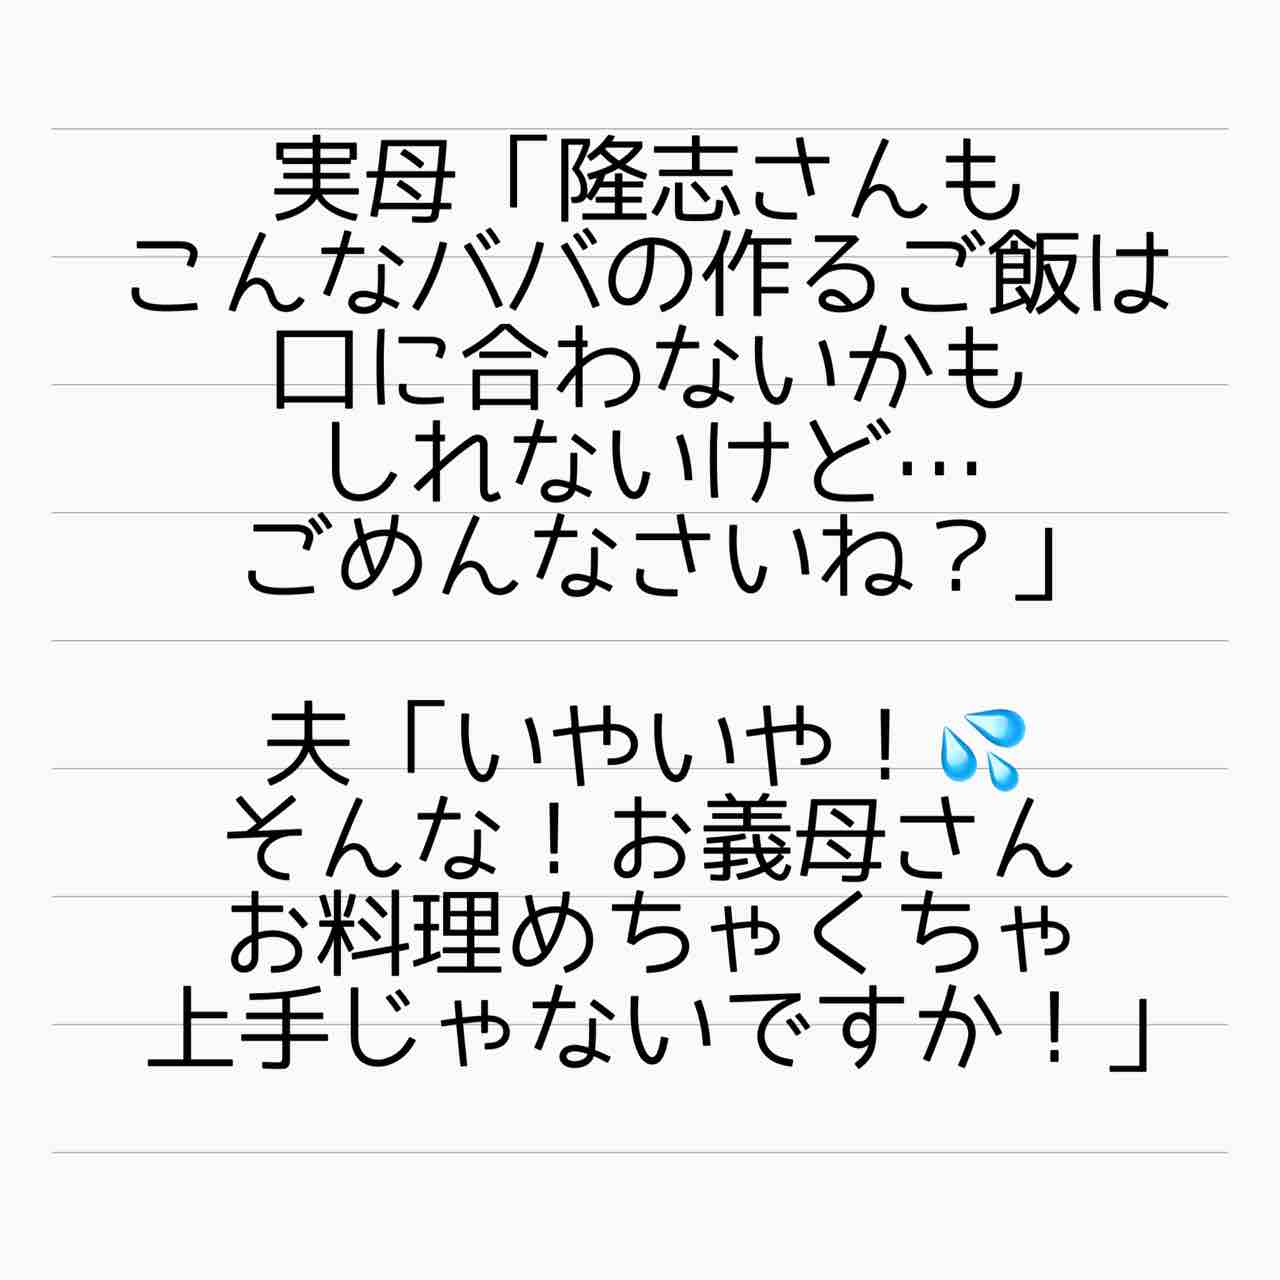 実母「隆志さんも
こんなババの作るご飯は
口に合わないかも
しれないけど…
ごめんなさいね？」
夫「いやいや！💦
そんな！お義母さん
お料理めちゃくちゃ
上手じゃないですか！」